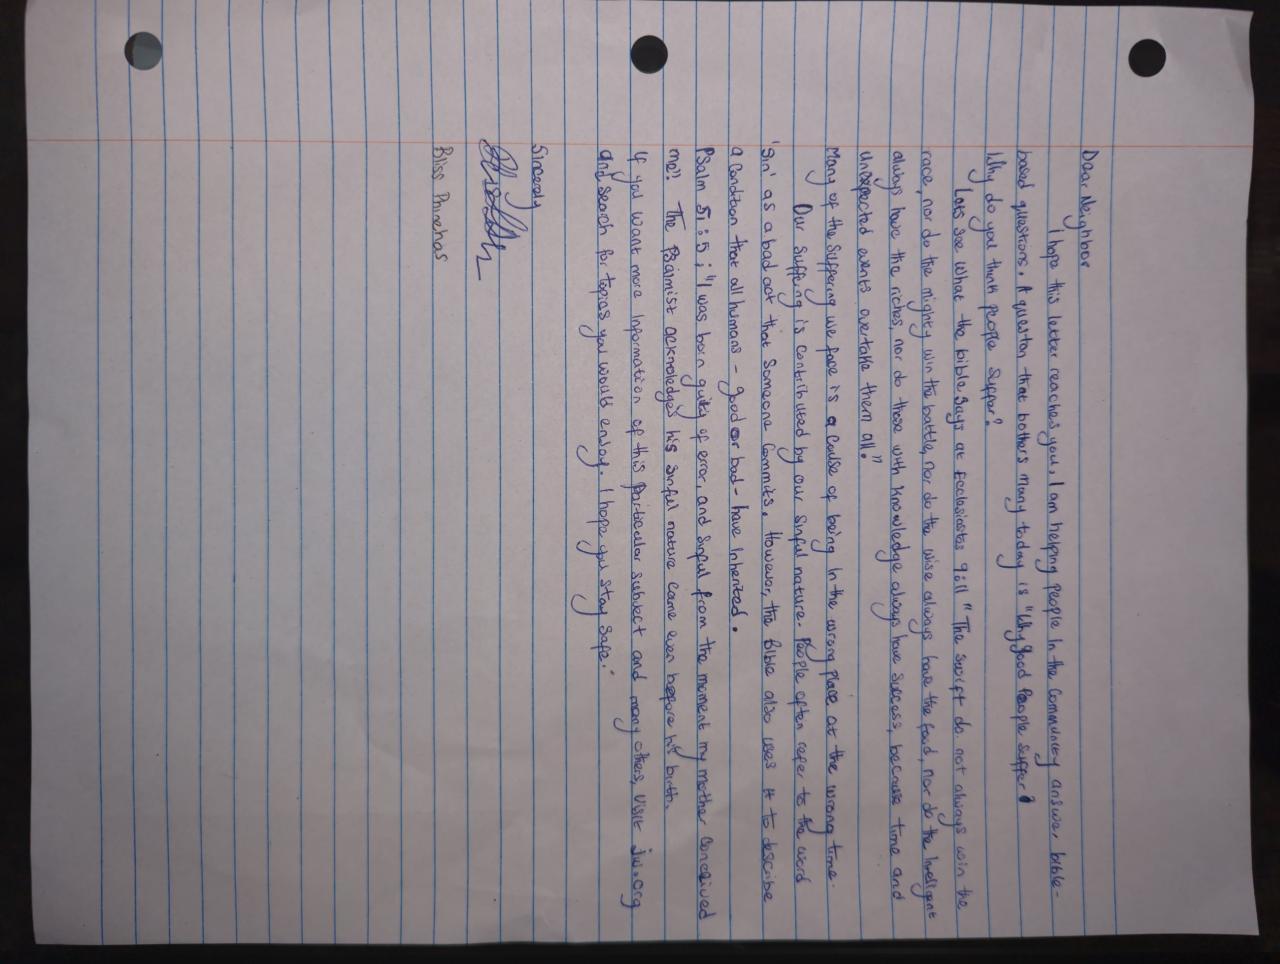 Dear Neighbor
I hope this letter reaches you. I am helping people in the community answer bible-
based questions. A queston that bothers many today is "Why good People Suffer?
Why do you think people suffer?
Lets see what the bible says at Ecclesiastes 9:11 "The swift do not always win the
race, nor do the mighty win the battle, nor do the wise always have the food, nor do the intelligent
always have the riches, nor do those with knowledge always have success, because time and
unexpected events overtake them all."
Many of the suffering we face is a cause of being in the wrong place at the wrong time.
Our suffering is contributed by our sinful nature. People often refer to the word
'sin' as a bad act that someone commits. However, the Bible also uses it to describe
a condition that all humans - good or bad - have inherited.
Psalm 51:5: "I was born guilty of error, and sinful from the moment my mother conceived
me". The Psalmist acknoledges his sinful nature came even before his birth.
If you want more information of this particular subject and many others, visit jw.org
and search for topics you would enjoy. I hope you stay safe.
Sincerely
Bliss Phinehas